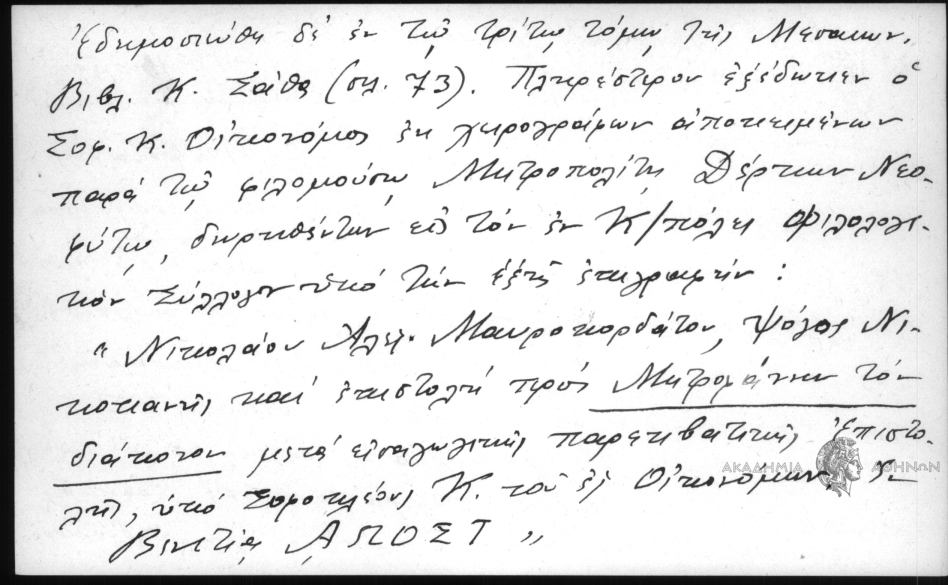 Ἐδημοσιεύθη δὲ ἐν τῷ τρίτῳ τόμῳ τῆς Μεσαιων.
Βιβλ. Κ. Σάθα (σελ. 73). Πληρέστερον ἐξέδωκεν ὁ
Σοφ. Κ. Οἰκονόμος ἐκ χειρογράφων ἀποκειμένων
παρὰ τῷ φιλομούσῳ Μητροπολίτῃ Δέρκων Νεο-
φύτῳ, δωρηθέντων εἰς τὸν ἐν Κ/πόλει Φιλολογι-
κὸν Σύλλογον ὑπὸ τὴν ἑξῆς ἐπιγραφήν:
"Νικολάου Ἀλεξ. Μαυροκορδάτου, ψόγος Νι-
κοτιανῆς καὶ ἐπιστολὴ πρὸς Μητροφάνην τὸν
διάκονον μετὰ εἰσαγωγικῆς παρεκβατικῆς ἐπιστο-
λῆς, ὑπὸ Σοφοκλέους Κ. τοῦ ἐξ Οἰκονόμων, Ἐν
Βενετίᾳ ΑΠΟΣΤ"
ΑΚΑΔΗΜΙΑ ΑΘΗΝΩΝ